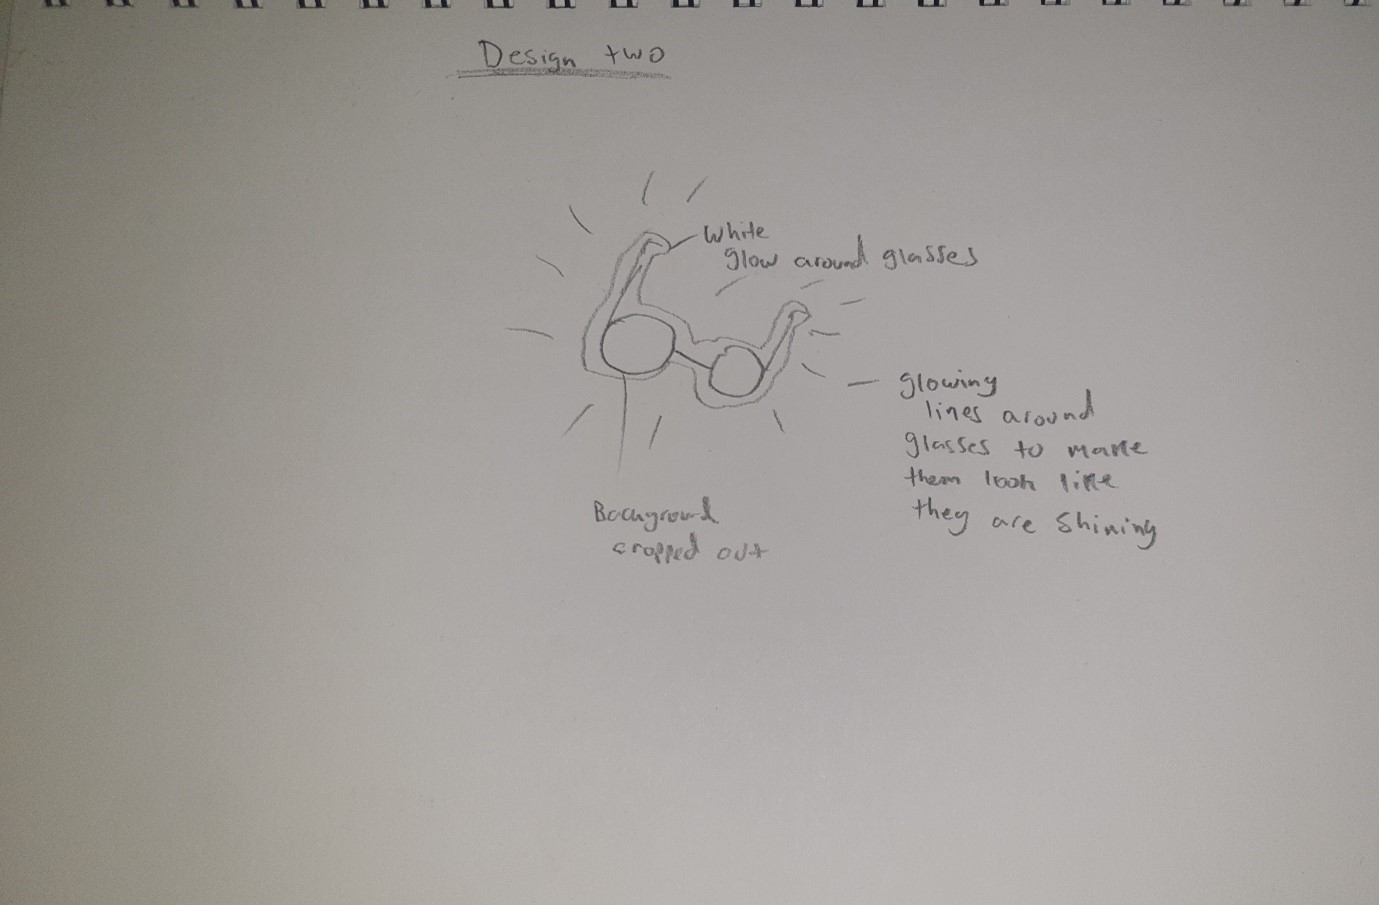 Design two
White
glow around glasses
glowing
lines around
glasses to make
them look like
they are shining
Bacuground
cropped out